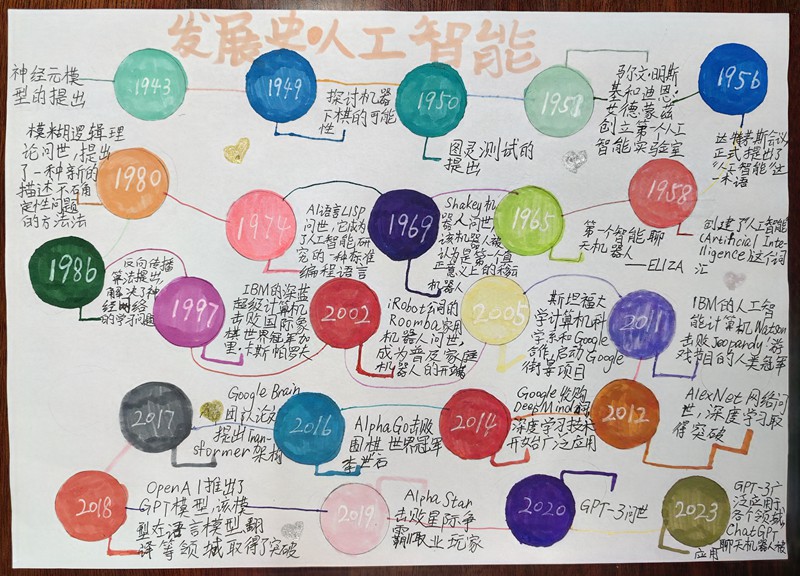 发展史·人工智能
神经元模
型的提出
1943
1949
探讨机器
下棋的可能
性
1950
图灵测试的
提出
1951
弥文·明斯
基和迪恩·
艾德蒙兹
创立第一个人工
智能实验室
1956
达特茅斯会议
正式提出了
"人工智能"这
一术语
模糊逻辑理
论问世,提出
了一种新的
描述不确
定性问题
的方法
1980
1974
AI语言LISP
问世,它成为
了人工智能研
究的一种标准
编程语言
1969
Shakey机
器人问世,
该机器人被
认为是第一个真
正意义上的移动
机器人
1965
第一个智能聊
天机器人
——ELIZA
1958
创建了人工智能
(Artificial Inte-
lligence)这个词
汇
1986
反向传播
算法提出,
解决了神
经网络
的学习问题
1997
IBM的深蓝
超级计算机
击败国际象
棋世界冠军加
里·卡斯帕罗夫
2002
iRobot公司的
Roomba家用
机器人问世,
成为普及家庭
机器人的开端
2005
斯坦福大
学计算机科
学系和Google
合作,启动Google
街景项目
2011
IBM的人工智
能计算机Watson
击败Jeopardy游
戏节目的人类冠军
2017
Google Brain
团队论文
提出Tran-
stormer架构
2016
AlphaGo击败
围棋世界冠军
李世石
2014
Google收购
DeepMind公司
深度学习技术
开始广泛应用
2012
AlexNet网络问
世,深度学习取
得突破
2018
OpenAI推出了
GPT模型,该模
型在语言模型翻
译等领域取得了突破
2019
AlphaStar
击败星际争
霸职业玩家
2020
GPT-3问世
2023
GPT-3广
泛应用于
各个领域,
ChatGPT
聊天机器人被
应用